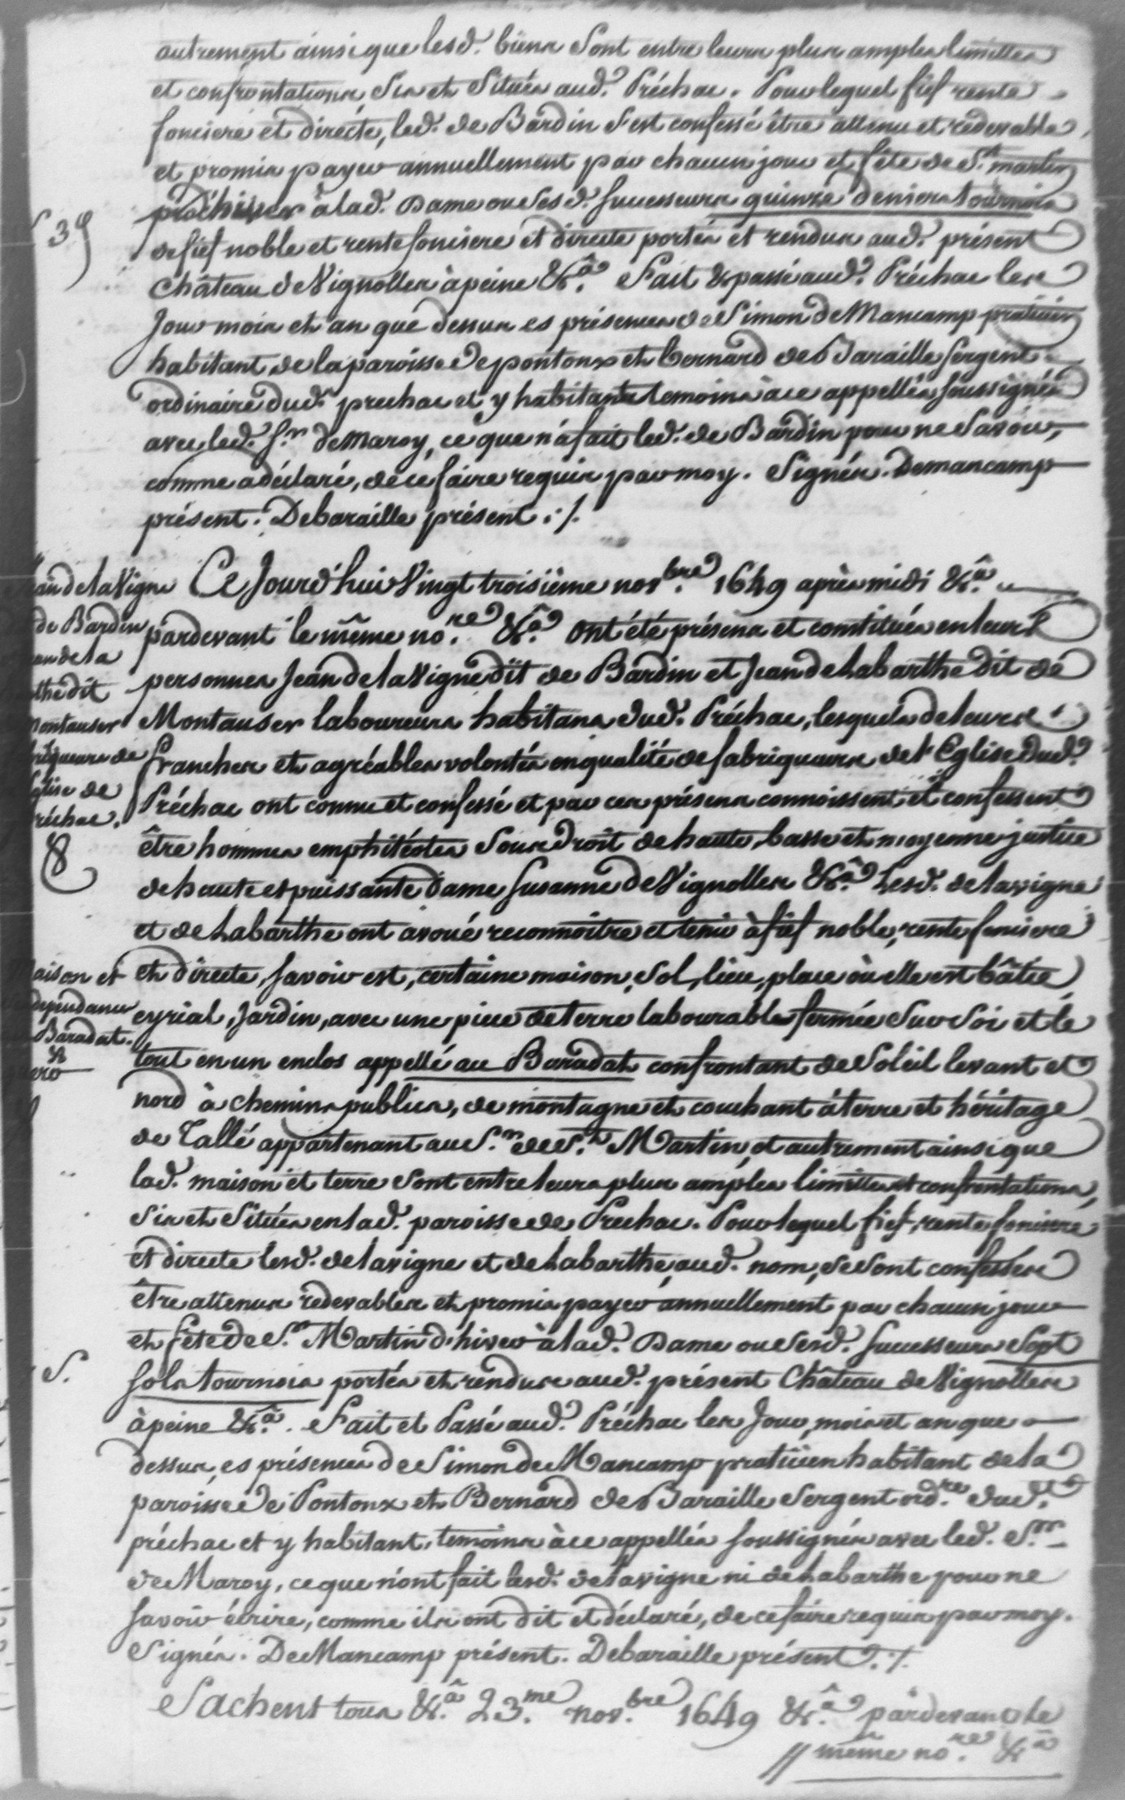 autrement ainsi que lesd. biens sont entre leurs plus amples limittes
et confrontations, sis et situés aud. Préchac. Pour lequel fief rente
fonciere et directe, led. de Bardin s'est confessé être attenu et redevable,
et promis payer annuellement par chacun jour et fête de St. martin
à lad. Dame ou sesd. successeurs quinze deniers tournois
S 39
de fief noble et rente fonciere et directe portés et rendus aud. présent
Château de Vignolles à peine &a. Fait & passé aud. Préchac les
Jour mois et an que dessus es présences de Simon de Mancamp praticien
habitant de la paroisse de pontonx et bernard de Baraille sergent
ordinaire dud. prechac et y habitant temoins à ce appellés soussignés
avec led. sr. de Maroy, ce que n'a fait led. de Bardin pour ne savoir,
comme a déclaré, de ce faire requis par moy. Signés. Demancamp
présent. Debaraille présent ./.
Ce Jourd'hui Vingt troisième novbre. 1649 après midi &a.
pardevant le même nore. &a. ont été présens et constitués en leurs
personnes Jean de la Vigne dit de Bardin et Jean de Labarthe dit de
Montauser laboureurs habitans dud. Préchac, lesquels de leurs
franches et agréables volontés en qualité de fabriqueurs de l'Eglise dud.
Préchac ont connu et confessé et par ces présens connoissent et confessent
être hommes emphitéotes sous droit de haute, basse et moyenne justice
de haute et puissante dame Susanne de Vignolles &a. Lesd. de lavigne
et de Labarthe ont avoué reconnoitre et tenir à fief noble, rente fonciere
de la Vigne
de Bardin
de la
dit
Montauser
de
de
8
et directe, savoir est, certaine maison, sol, lieu, place où elle est bâtie
eyrial, Jardin, avec une piece de terre labourable fermée sur soi et le
tout en un enclos appellé au Baradat confrontant de soleil levant et
nord à chemins publics, de montagne et couchant à terre et héritage
de Tallé appartenant au Sr. de St. Martin, et autrement ainsi que
lad. maison et terre sont entre leurs plus amples limittes et confrontations,
sis et situés en lad. paroisse de Prechac. Pour lequel fief, rente fonciere
et directe lesd. de lavigne et de Labarthe, aud. nom, se sont confessés
être attenus redevables et promis payer annuellement par chacun jour
et fête de St. Martin d'hiver à lad. Dame ou sesd. successeurs sept
maison et
Baradat.
S.
sols tournois portés et rendus aud. présent Château de Vignolles
à peine &a. Fait et Passé aud. Préchac les Jour, mois et an que
dessus, es présences de Simon de Mancamp praticien habitant de la
paroisse de Pontonx et Bernard de Baraille sergent ordre. dud.
préchac et y habitant, temoins à ce appellés soussignés avec led. Sr.
de Maroy, ce que n'ont fait lesd. de lavigne ni de Labarthe pour ne
savoir écrire, comme ils ont dit et déclaré, de ce faire requis par moy.
Signés. De Mancamp présent. Debaraille présent ./.
Sachent tous &a 23.me nov.bre 1649 &a pardevant le
// même nore. &a